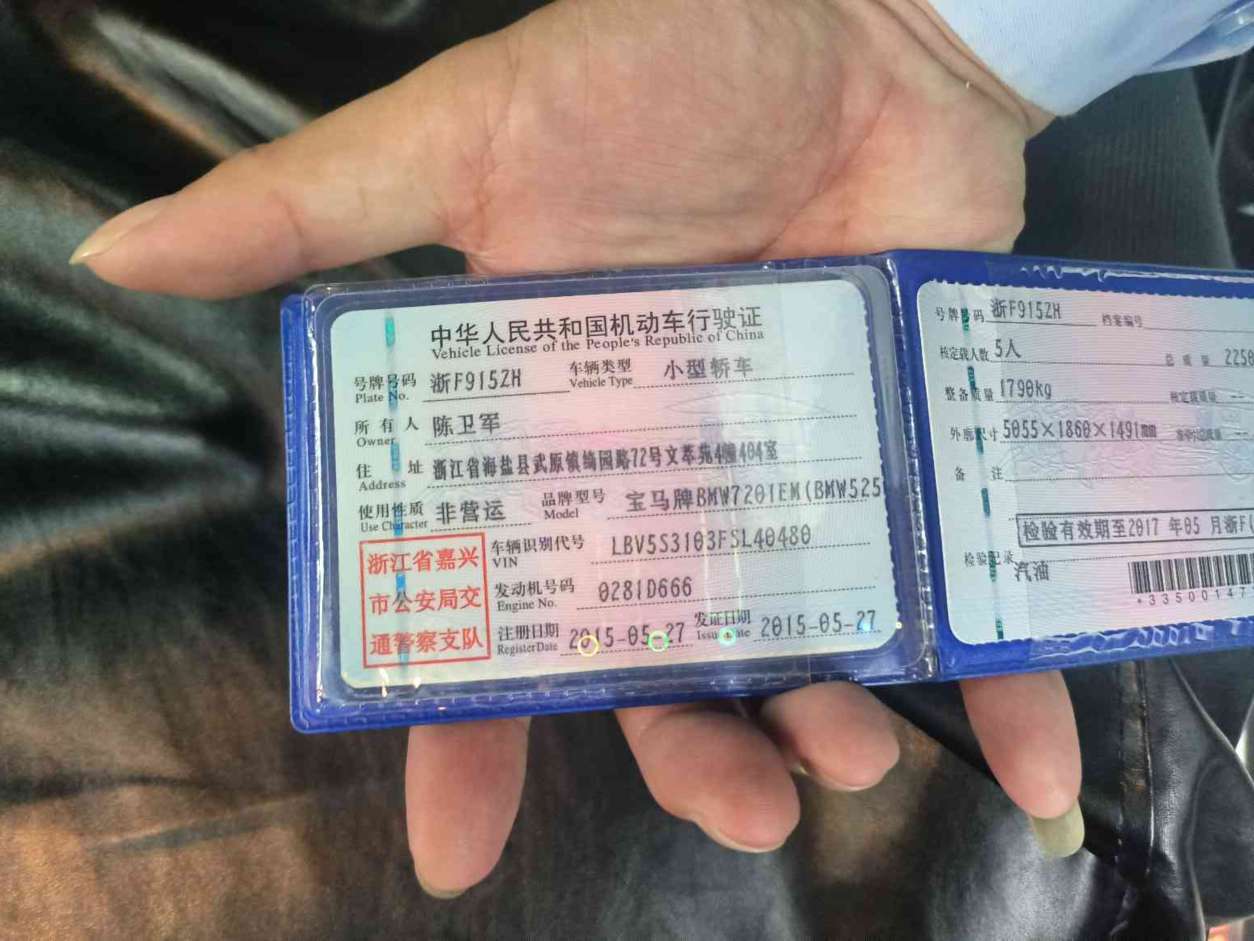 中华人民共和国机动车行驶证
Vehicle License of the People's Republic of China
号牌号码 浙F915ZH 车辆类型 小型轿车
Plate No. Vehicle Type
所有人 陈卫军
Owner
住址 浙江省海盐县武原镇绮园路72号文萃苑4幢404室
Address
使用性质 非营运 品牌型号 宝马牌BMW7201EM(BMW525
Use Character Model
浙江省嘉兴
市公安局交
通警察支队
车辆识别代号 LBV5S3103FSL40480
VIN
发动机号码 0281D666
Engine No.
注册日期 2015-05-27 发证日期 2015-05-27
Register Date Issue Date
号牌号码 浙F915ZH 档案编号
核定载人数 5人 总质量 2250
整备质量 1790kg 核定载质量 --
外廓尺寸 5055×1860×1491mm 准牵引总质量 --
备注
检验有效期至2017年05月浙F
检验记录
汽油
+33500147